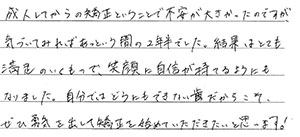 成人してからの矯正ということで不安が大きかったのですが
気づいてみればあっという間の2年半でした。結果はとても
満足のいくもので、笑顔に自信が持てるようにも
なりました。自分ではどうにもできない歯だからこそ、
ぜひ勇気を出して矯正を始めていただきたいと思います!